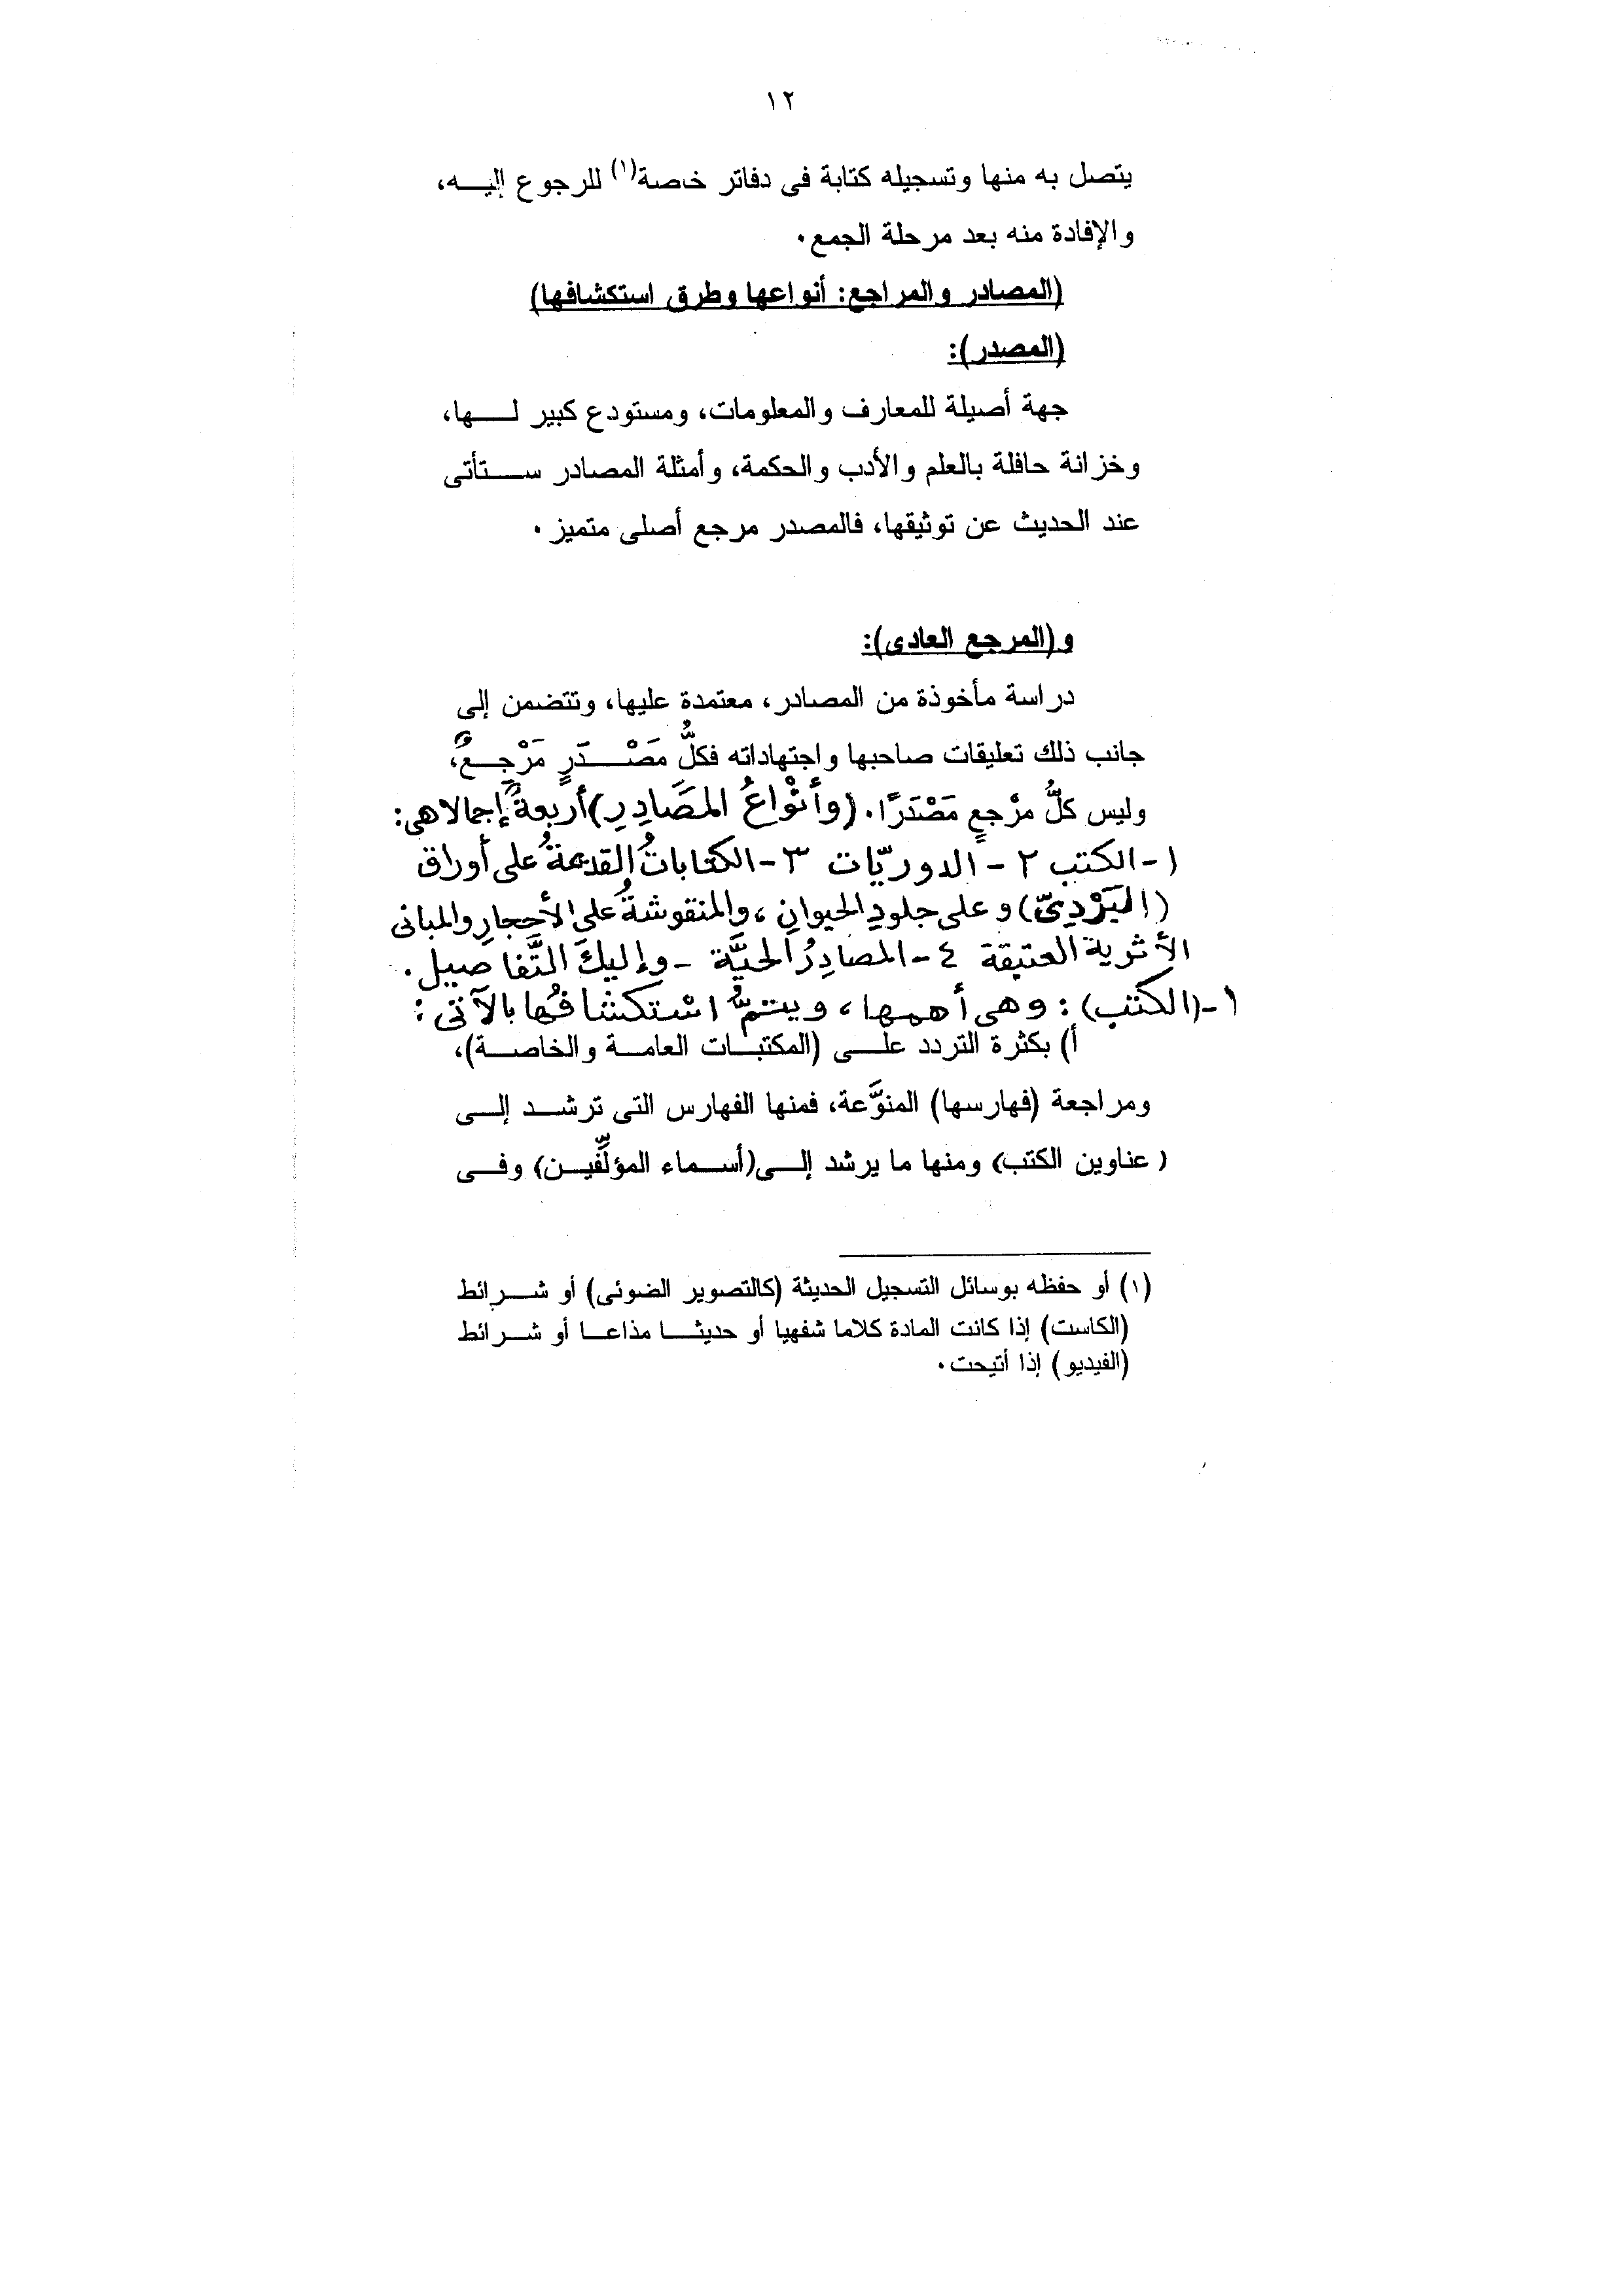 ١٢
يتصل به منها وتسجيله كتابة فى دفاتر خاصة(١) للرجوع إليه،
والإفادة منه بعد مرحلة الجمع.
(المصادر والمراجع: أنواعها وطرق استكشافها)
(المصدر):
جهة أصيلة للمعارف والمعلومات، ومستودع كبير لها،
وخزانة حافلة بالعلم والأدب والحكمة، وأمثلة المصادر ستأتى
عند الحديث عن توثيقها، فالمصدر مرجع أصلى متميز.
و(المرجع العادى):
دراسة مأخوذة من المصادر، معتمدة عليها، وتتضمن إلى
جانب ذلك تعليقات صاحبها واجتهاداته فكلُّ مَصْدَرٍ مَرْجِعٌ،
وليس كلُّ مرْجعٍ مَصْدَرًا. (وأنْواعُ المصَادِرِ) أربعةٌ إجمالا هى:
١- الكتب ٢- الدوريّات ٣- الكتاباتُ القديمةُ على أوراق
(البَرْدِىّ) وعلى جلودِ الحيوانِ، والمنقوشةُ على الأحجارِ والمبانى
الأثرية العتيقة ٤- المصادِرُ الحيَّة - وإليكَ التَّفاصيل.
١- (الكتب): وهى أهمها، ويتمُّ اسْتكشافُها بالآتى:
أ) بكثرة التردد على (المكتبات العامة والخاصة)،
ومراجعة (فهارسها) المنوَّعة، فمنها الفهارس التى ترشد إلى
(عناوين الكتب) ومنها ما يرشد إلى (أسماء المؤلِّفين) وفى
(١) أو حفظه بوسائل التسجيل الحديثة (كالتصوير الضوئى) أو شرائط
(الكاست) إذا كانت المادة كلاما شفهيا أو حديثا مذاعا أو شرائط
(الفيديو) إذا أتيحت.